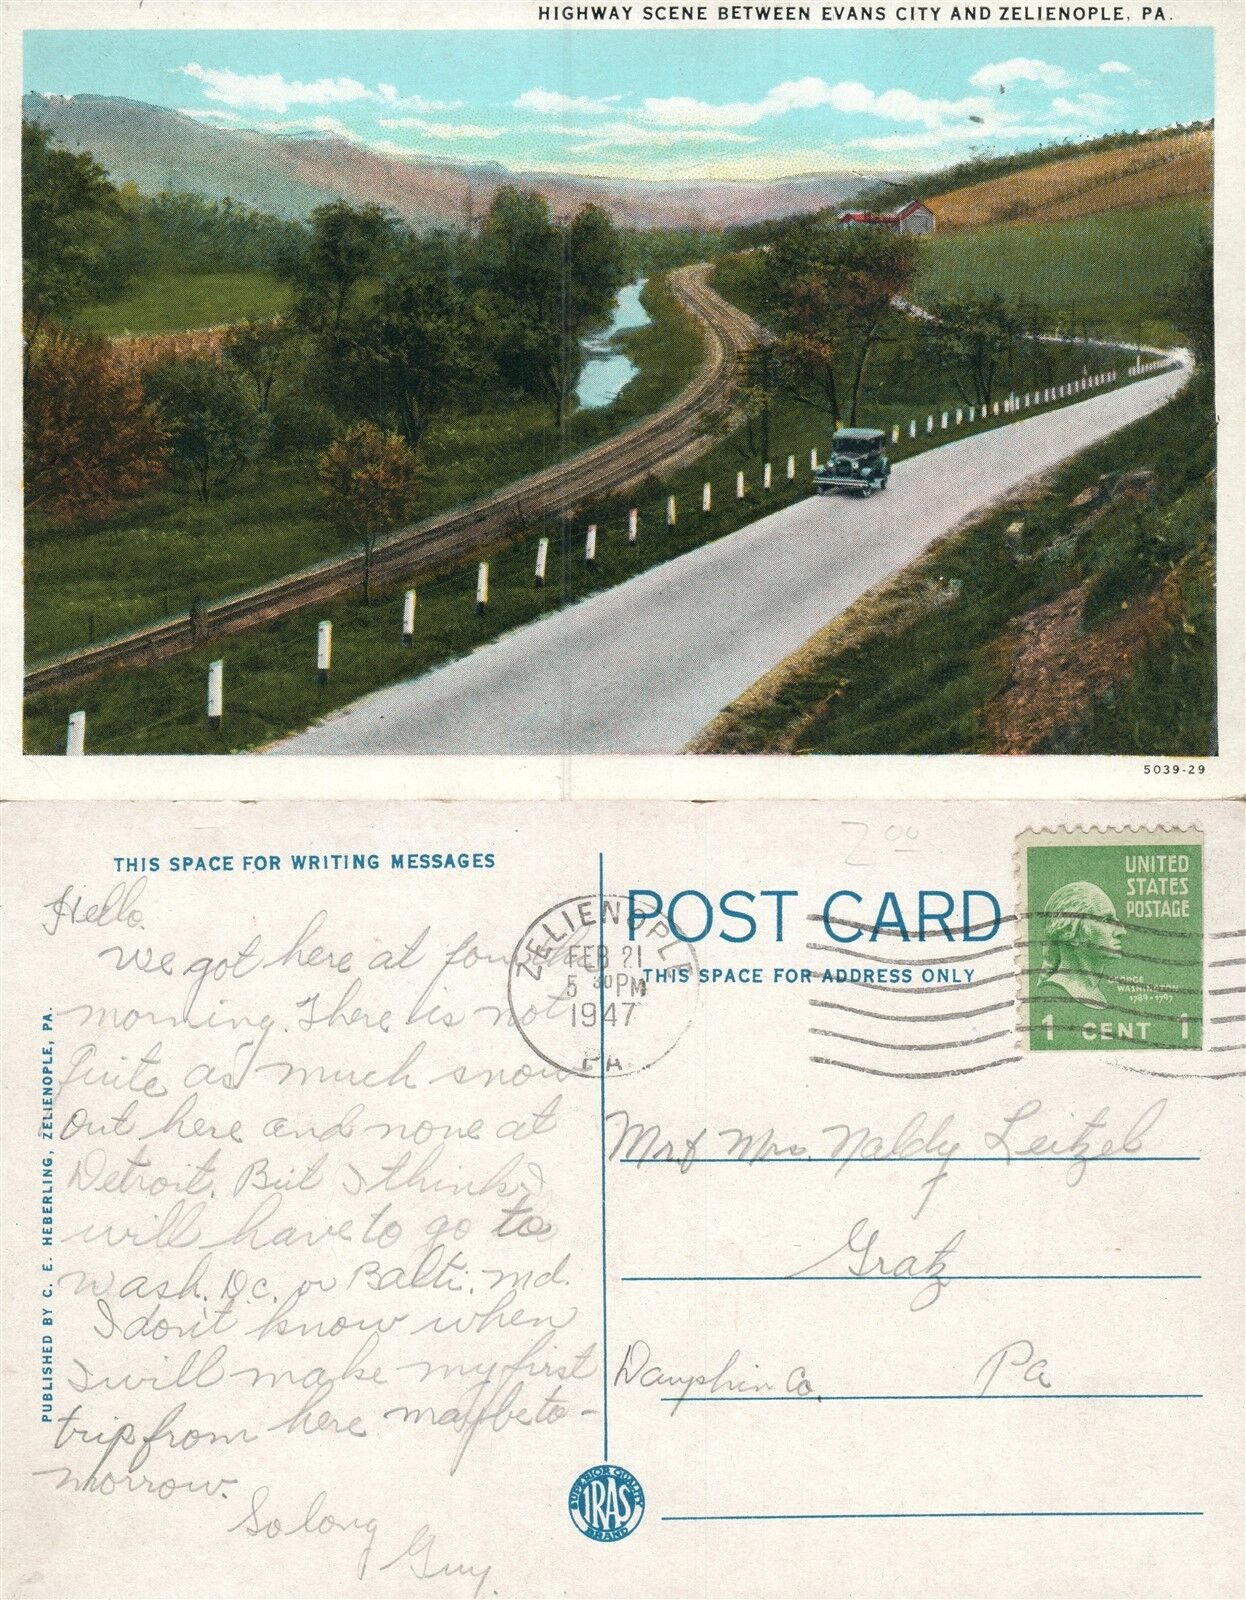 HIGHWAY SCENE BETWEEN EVANS CITY AND ZELIENOPLE, PA.
5039-29
THIS SPACE FOR WRITING MESSAGES
Hello.
We got here at four this
morning. There is not
quite as much snow
out here and none at
Detroit. But I think I
will have to go to
Wash. D.c. or Balti. Md.
I don't know when
I will make my first
trip from here maybe to-
morrow.
So long
Guy.
PUBLISHED BY C. E. HEBERLING, ZELIENOPLE, PA.
ZELIENOPLE
FEB 21
5 30 PM
1947
PA.
2 00
POST CARD
THIS SPACE FOR ADDRESS ONLY
UNITED
STATES
POSTAGE
GEORGE
WASHINGTON
1789-1797
1 CENT 1
Mr & Mrs. Naldy Leitzel
Gratz
Dauphin Co. Pa
SUPERIOR QUALITY
IRAS
BRAND